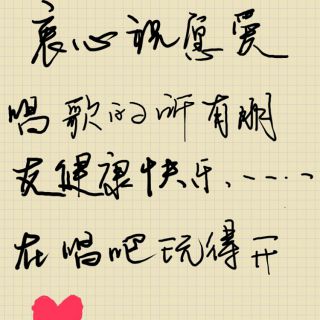 衷心祝愿爱
唱歌的所有朋
友健康快乐……
在唱吧玩得开